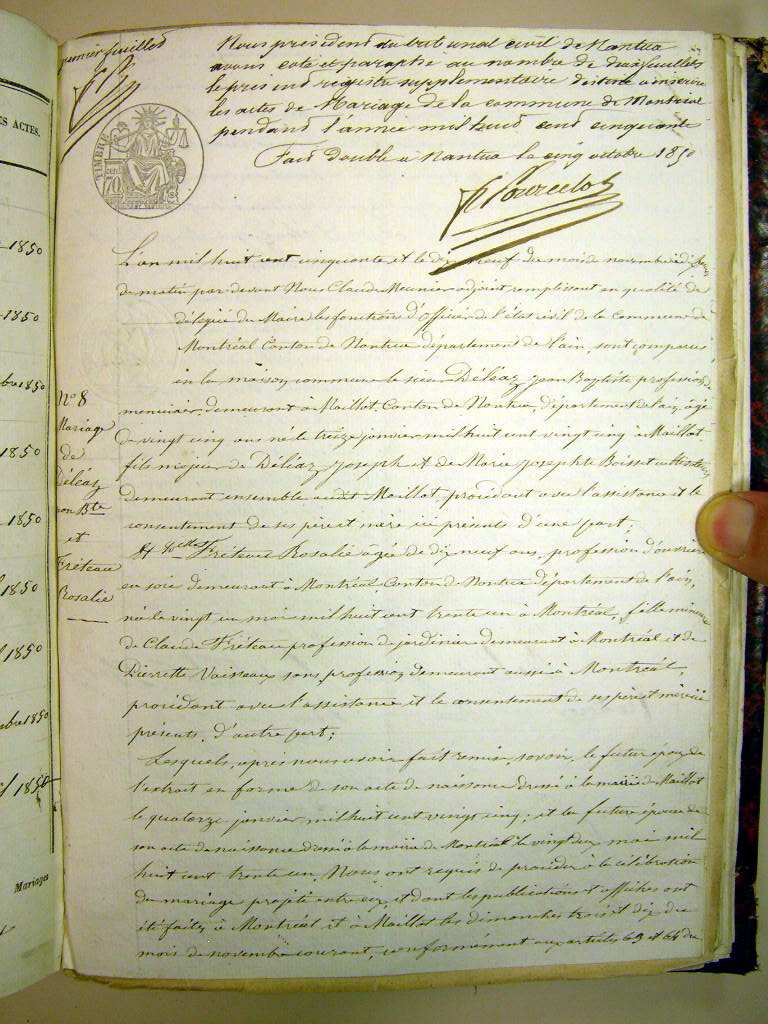 premier feuillet
Nous président du tribunal civil de Nantua
avons coté et paraphé au nombre de deux feuillets
le présent registre supplementaire destiné a inscrire
les actes de Mariage de la commune de Montréal
pendant l'année mil huit cent cinquante
Fait double a Nantua le cinq octobre 1850
TIMBRE
70
S ACTES.
1850
1850
bre 1850
1850
1850
1850
1850
mbre 1850
1850
Mariages
L'an mil huit cent cinquante et le dix neuf du mois de novembre à dix heures
du matin par devant Nous Claude Meunier adjoint remplissant en qualité de
délégué du Maire les fonctions d'Officier de l'état civil de la Commune de
Montréal Canton de Nantua département de l'ain, sont comparus
en la maison commune le sieur Déléaz Jean Baptiste profession de
menuisier, demeurant à Maillot, Canton de Nantua, département de l'ain, âgé
de vingt cinq ans né le treize janvier mil huit cent vingt cinq à Maillot
fils majeur de Déléaz Joseph et de Marie Josephte Boisset cultivateurs
demeurant ensemble audit Maillot, procédant avec l'assistance et le
consentement de ses père et mère ici présents d'une part;
Et Delle Fréteau Rosalie âgée de dix neuf ans, profession d'ouvrière
en soie demeurant à Montréal, Canton de Nantua département de l'ain,
née le vingt un mai mil huit cent trente un à Montréal, fille mineure
de Claude Fréteau profession de jardinier demeurant à Montréal et de
Pierrette Vaisseaux sans profession demeurant aussi à Montréal,
procédant avec l'assistance et le consentement de ses père et mère ici
présents, d'autre part;
Lesquels, après nous avoir fait remise, savoir, le futur époux de
l'extrait en forme de son acte de naissance dressé à la mairie de Maillot
le quatorze janvier mil huit cent vingt cinq; et la future épouse de
son acte de naissance dressé à la mairie de Montréal le vingt deux mai mil
huit cent trente un, Nous ont requis de procéder à la célébration
du mariage projeté entre eux, et dont les publications et affiches ont
été faites à Montréal et à Maillot les dimanches trois et dix du
mois de novembre courant, conformément aux articles 63 et 64 du
N° 8
Mariage
de
Déléaz
Jean Bte
et
Fréteau
Rosalie